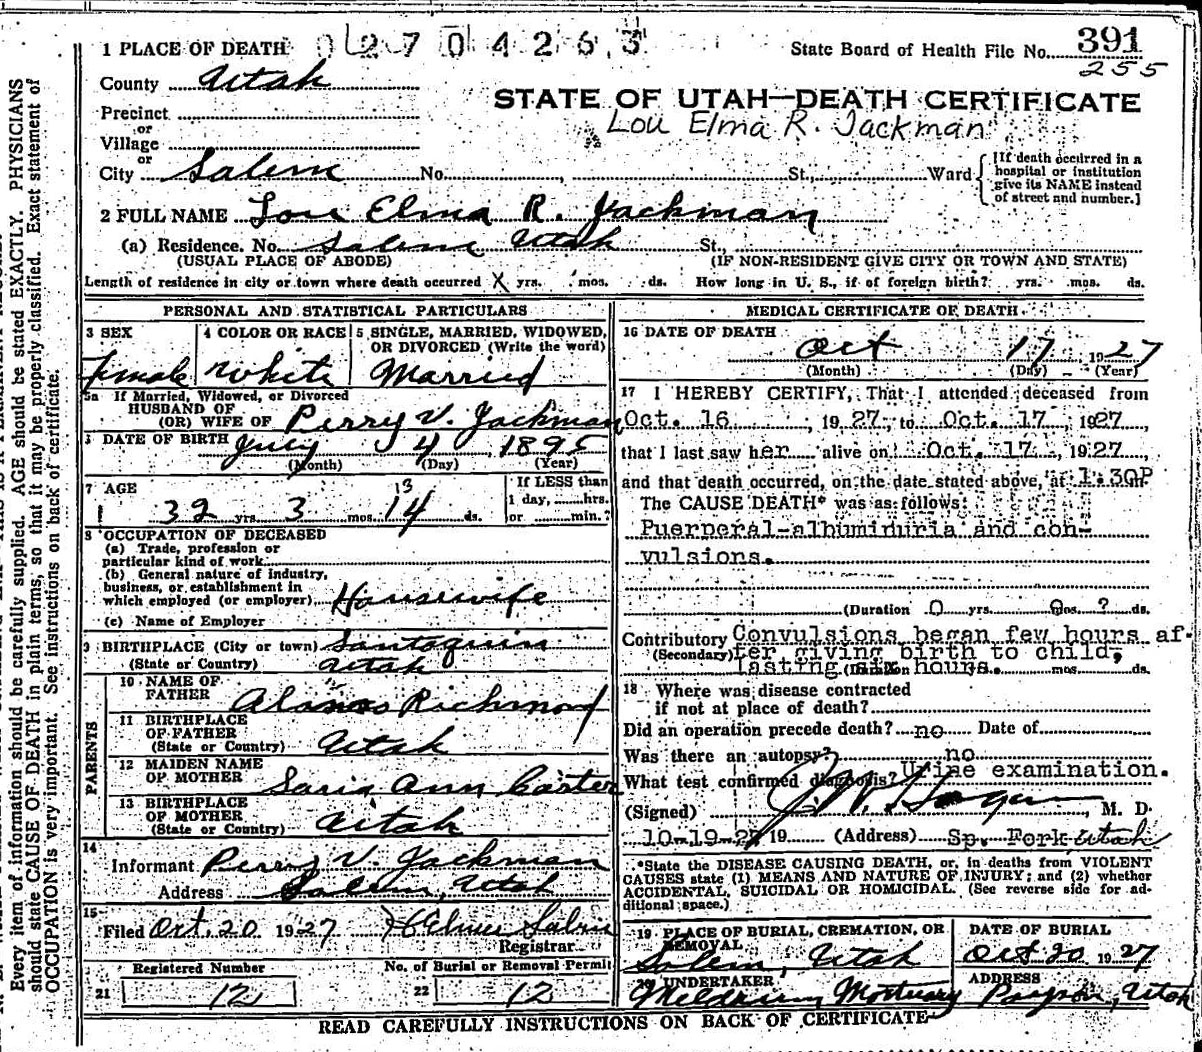 1 PLACE OF DEATH 0 2 7 0 4 2 6 3 State Board of Health File No. 391
255
County Utah
STATE OF UTAH—DEATH CERTIFICATE
Precinct
Lou Elma R. Jackman
or
Village
or
City Salem No. St., Ward
[If death occurred in a
hospital or institution
give its NAME instead
of street and number.]
2 FULL NAME Lou Elma R. Jackman
(a) Residence. No. Salem Utah St.
(USUAL PLACE OF ABODE) (IF NON-RESIDENT GIVE CITY OR TOWN AND STATE)
Length of residence in city or town where death occurred X yrs. mos. ds. How long in U. S., if of foreign birth? yrs. mos. ds.
PERSONAL AND STATISTICAL PARTICULARS
3 SEX 4 COLOR OR RACE 5 SINGLE, MARRIED, WIDOWED,
OR DIVORCED (Write the word)
Female White Married
5a If Married, Widowed, or Divorced
HUSBAND OF
(OR) WIFE OF Perry V. Jackman
DATE OF BIRTH July 4 1895
(Month) (Day) (Year)
7 AGE If LESS than
13 1 day, hrs.
32 yrs. 3 mos. 14 ds. or min.?
8 OCCUPATION OF DECEASED
(a) Trade, profession or
particular kind of work
(b) General nature of industry,
business, or establishment in
which employed (or employer) Housewife
(c) Name of Employer
9 BIRTHPLACE (City or town) Santaquin
(State or Country) Utah
PARENTS
10 NAME OF
FATHER Alonzo Richmond
11 BIRTHPLACE
OF FATHER
(State or Country) Utah
12 MAIDEN NAME
OF MOTHER Saria Ann Carter
13 BIRTHPLACE
OF MOTHER
(State or Country) Utah
14
Informant Perry V. Jackman
Address Salem, Utah
15
Filed Oct. 20 1927
Registrar
Registered Number No. of Burial or Removal Permit
21 12 22 12
MEDICAL CERTIFICATE OF DEATH
16 DATE OF DEATH
Oct 17 1927
(Month) (Day) (Year)
17 I HEREBY CERTIFY, That I attended deceased from
Oct. 16, 1927, to Oct. 17, 1927,
that I last saw her alive on Oct. 17, 1927,
and that death occurred, on the date stated above, at 1:30P
The CAUSE DEATH* was as follows:
Puerperal-albuminuria and con-
vulsions.
(Duration 0 yrs. 0os. ? ds.
Contributory Convulsions began few hours af-
(Secondary) ter giving birth to child,
lasting six hours. mos. ds.
18 Where was disease contracted
if not at place of death?
Did an operation precede death? no Date of
Was there an autopsy? no
What test confirmed diagnosis? Urine examination.
(Signed) M. D.
10-19-27 19 (Address) Sp. Fork Utah
*State the DISEASE CAUSING DEATH, or, in deaths from VIOLENT
CAUSES state (1) MEANS AND NATURE OF INJURY; and (2) whether
ACCIDENTAL, SUICIDAL OR HOMICIDAL. (See reverse side for ad-
ditional space.)
19 PLACE OF BURIAL, CREMATION, OR
REMOVAL DATE OF BURIAL
Salem, Utah Oct 20 1927
20 UNDERTAKER ADDRESS
Meldrum Mortuary Payson, Utah
READ CAREFULLY INSTRUCTIONS ON BACK OF CERTIFICATE
Every item of information should be carefully supplied. AGE should be stated EXACTLY. PHYSICIANS
should state CAUSE OF DEATH in plain terms, so that it may be properly classified. Exact statement of
OCCUPATION is very important. See instructions on back of certificate.